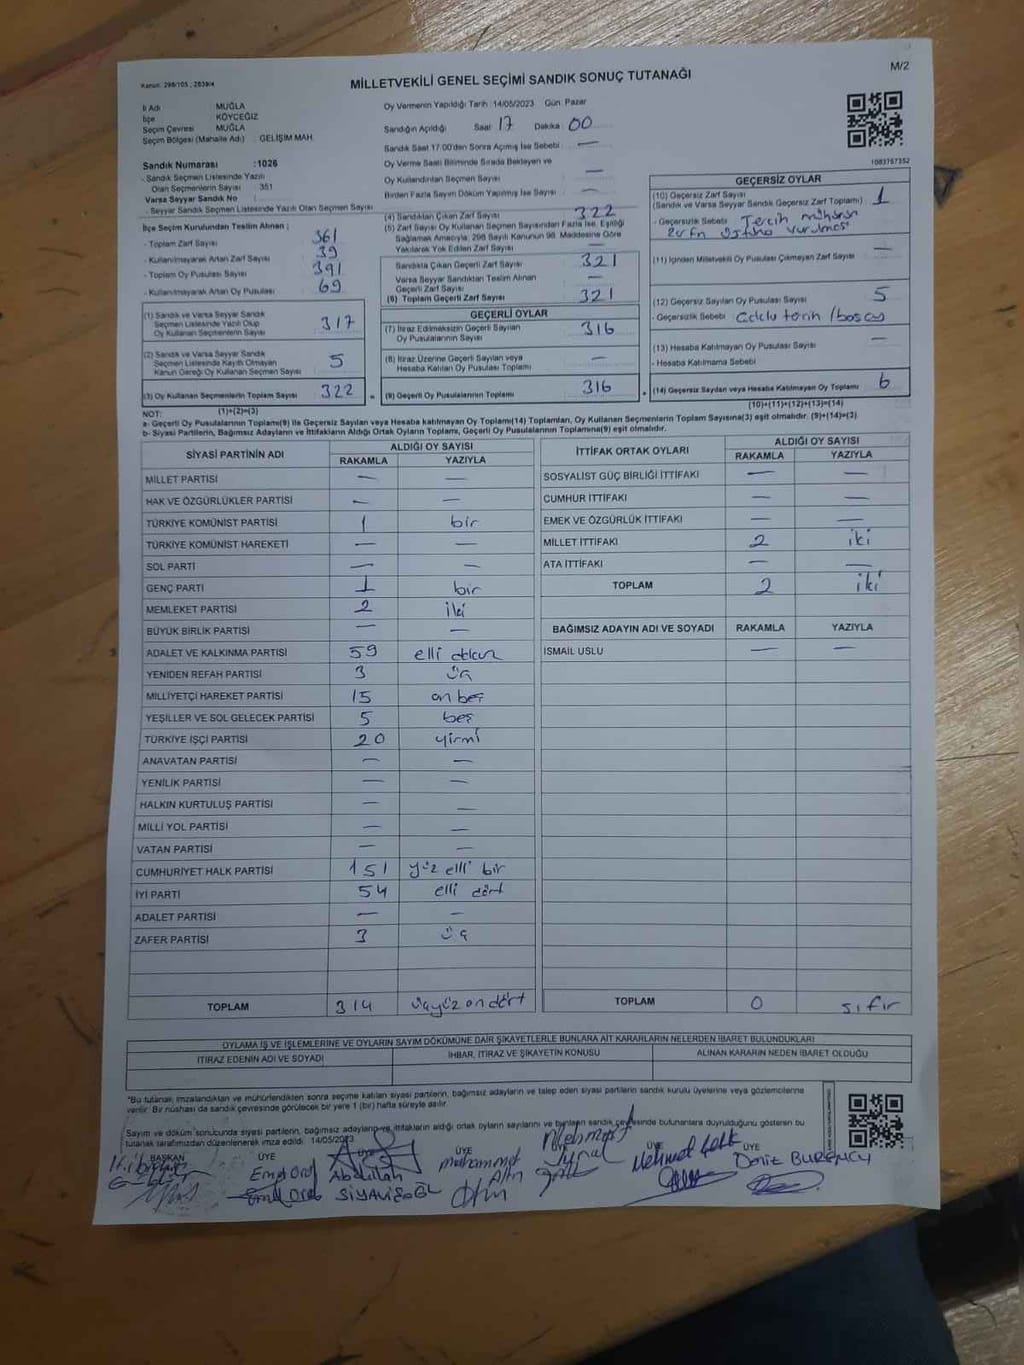 Kanun: 298/105 , 2839/4
MİLLETVEKİLİ GENEL SEÇİMİ SANDIK SONUÇ TUTANAĞI
M/2
İl Adı : MUĞLA
İlçe : KÖYCEĞİZ
Seçim Çevresi : MUĞLA
Seçim Bölgesi (Mahalle Adı) : GELİŞİM MAH.
Sandık Numarası :1026
- Sandık Seçmen Listesinde Yazılı
Olan Seçmenlerin Sayısı : 351
Varsa Seyyar Sandık No :
- Seyyar Sandık Seçmen Listesinde Yazılı Olan Seçmen Sayısı
İlçe Seçim Kurulundan Teslim Alınan ;
- Toplam Zarf Sayısı 361
- Kullanılmayarak Artan Zarf Sayısı 39
- Toplam Oy Pusulası Sayısı 391
- Kullanılmayarak Artan Oy Pusulası 69
(1) Sandık ve Varsa Seyyar Sandık
Seçmen Listesinde Yazılı Olup
Oy Kullanan Seçmenlerin Sayısı 317
(2) Sandık ve Varsa Seyyar Sandık
Seçmen Listesinde Kayıtlı Olmayan
Kanun Gereği Oy Kullanan Seçmen Sayısı 5
(3) Oy Kullanan Seçmenlerin Toplam Sayısı 322
(1)+(2)=(3)
Oy Vermenin Yapıldığı Tarih :14/05/2023 Gün: Pazar
Sandığın Açıldığı Saat: 17 Dakika: 00
Sandık Saat 17:00'den Sonra Açılmış İse Sebebi : —
Oy Verme Saati Bitiminde Sırada Bekleyen ve
Oy Kullandırılan Seçmen Sayısı —
Birden Fazla Sayım Döküm Yapılmış İse Sayısı —
(4) Sandıktan Çıkan Zarf Sayısı 322
(5) Zarf Sayısı Oy Kullanan Seçmen Sayısından Fazla İse, Eşitliği
Sağlamak Amacıyla, 298 Sayılı Kanunun 98. Maddesine Göre
Yakılarak Yok Edilen Zarf Sayısı —
Sandıkta Çıkan Geçerli Zarf Sayısı 321
Varsa Seyyar Sandıktan Teslim Alınan
Geçerli Zarf Sayısı —
(6) Toplam Geçerli Zarf Sayısı 321
GEÇERLİ OYLAR
(7) İtiraz Edilmeksizin Geçerli Sayılan
Oy Pusulalarının Sayısı 316
(8) İtiraz Üzerine Geçerli Sayılan veya
Hesaba Katılan Oy Pusulası Toplamı —
(9) Geçerli Oy Pusulalarının Toplamı 316
1083767352
GEÇERSİZ OYLAR
(10) Geçersiz Zarf Sayısı
(Sandık ve Varsa Seyyar Sandık Geçersiz Zarf Toplamı) 1
- Geçersizlik Sebebi : Tercih mührünün
Zarfın üstüne vurulması
(11) İçinden Milletvekili Oy Pusulası Çıkmayan Zarf Sayısı —
(12) Geçersiz Sayılan Oy Pusulası Sayısı 5
- Geçersizlik Sebebi
(13) Hesaba Katılmayan Oy Pusulası Sayısı —
- Hesaba Katılmama Sebebi
(14) Geçersiz Sayılan veya Hesaba Katılmayan Oy Toplamı 6
(10)+(11)+(12)+(13)=(14)
NOT:
a- Geçerli Oy Pusulasının Toplamı(9) ile Geçersiz Sayılan veya Hesaba katılmayan Oy Toplamı(14) Toplamları, Oy Kullanan Seçmenlerin Toplam Sayısına(3) eşit olmalıdır. (9)+(14)=(3)
b- Siyasi Partilerin, Bağımsız Adayların ve İttifakların Aldığı Ortak Oyların Toplamı, Geçerli Oy Pusulalarının Toplamına(9) eşit olmalıdır.
SİYASİ PARTİNİN ADI ALDIĞI OY SAYISI
RAKAMLA YAZIYLA
MİLLET PARTİSİ — —
HAK VE ÖZGÜRLÜKLER PARTİSİ — —
TÜRKİYE KOMÜNİST PARTİSİ 1 bir
TÜRKİYE KOMÜNİST HAREKETİ — —
SOL PARTİ — —
GENÇ PARTİ 1 bir
MEMLEKET PARTİSİ 2 iki
BÜYÜK BİRLİK PARTİSİ — —
ADALET VE KALKINMA PARTİSİ 59 elli dokuz
YENİDEN REFAH PARTİSİ 3 üç
MİLLİYETÇİ HAREKET PARTİSİ 15 on beş
YEŞİLLER VE SOL GELECEK PARTİSİ 5 beş
TÜRKİYE İŞÇİ PARTİSİ 20 yirmi
ANAVATAN PARTİSİ — —
YENİLİK PARTİSİ — —
HALKIN KURTULUŞ PARTİSİ — —
MİLLİ YOL PARTİSİ — —
VATAN PARTİSİ — —
CUMHURİYET HALK PARTİSİ 151 yüz elli bir
İYİ PARTİ 54 elli dört
ADALET PARTİSİ — —
ZAFER PARTİSİ 3 üç
TOPLAM 314 üçyüz on dört
İTTİFAK ORTAK OYLARI ALDIĞI OY SAYISI
RAKAMLA YAZIYLA
SOSYALİST GÜÇ BİRLİĞİ İTTİFAKI — —
CUMHUR İTTİFAKI — —
EMEK VE ÖZGÜRLÜK İTTİFAKI — —
MİLLET İTTİFAKI 2 iki
ATA İTTİFAKI — —
TOPLAM 2 iki
BAĞIMSIZ ADAYIN ADI VE SOYADI RAKAMLA YAZIYLA
İSMAİL USLU — —
TOPLAM 0 sıfır
OYLAMA İŞ VE İŞLEMLERİNE VE OYLARIN SAYIM DÖKÜMÜNE DAİR ŞİKAYETLERLE BUNLARA AİT KARARLARIN NELERDEN İBARET BULUNDUKLARI
İTİRAZ EDENİN ADI VE SOYADI İHBAR, İTİRAZ VE ŞİKAYETİN KONUSU ALINAN KARARIN NEDEN İBARET OLDUĞU
*Bu tutanak imzalandıktan ve mühürlendikten sonra seçime katılan siyasi partilerin, bağımsız adayların ve talep eden siyasi partilerin sandık kurulu üyelerine veya gözlemcilerine
verilir. Bir nüshası da sandık çevresinde görülecek bir yere 1 (bir) hafta süreyle asılır.
Sayım ve döküm sonucunda siyasi partilerin, bağımsız adayların ve ittifakların aldığı ortak oyların sayılarını ve bunların sandık çevresinde bulunanlara duyurulduğunu gösteren bu
tutanak tarafımızdan düzenlenerek imza edildi. 14/05/2023
BAŞKAN ÜYE ÜYE ÜYE ÜYE ÜYE
Abdullah Muhammed Mehmet Mehmet Deniz BURENCU